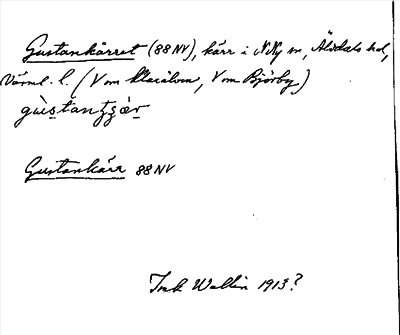 Gustankärret (88 NV), kärr i N Ny sn, Älvdals hd,
Värml. l. (V om Klarälven, V om Björby)
Gustankärr 88 NV
Ink Wallin 1913?